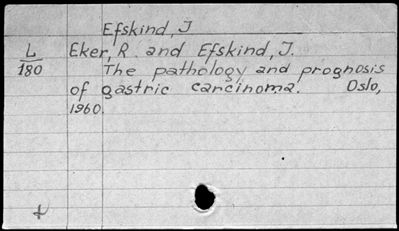 Efskind, J
L Eker, R. and Efskind, J.
180 The pathology and prognosis
of gastric carcinoma. Oslo,
1960.